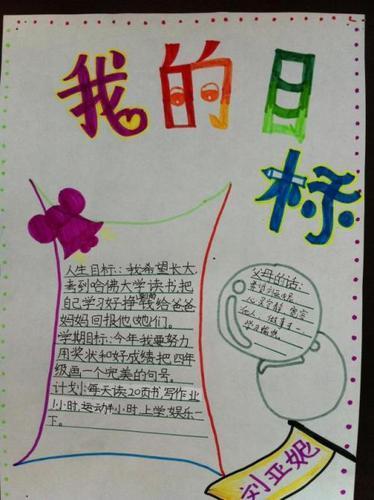 我的目标
人生目标:我希望长大,
去到哈佛大学读书把
自己学习好挣钱给爸爸
妈妈回报他(她)们。
学期目标:今年我要努力
用奖状和好成绩把四年
级画一个完美的句号。
计划:每天读20页书,写作业
1小时,运动半小时,上学娱乐一
下。
父母的话:
刘亚妮